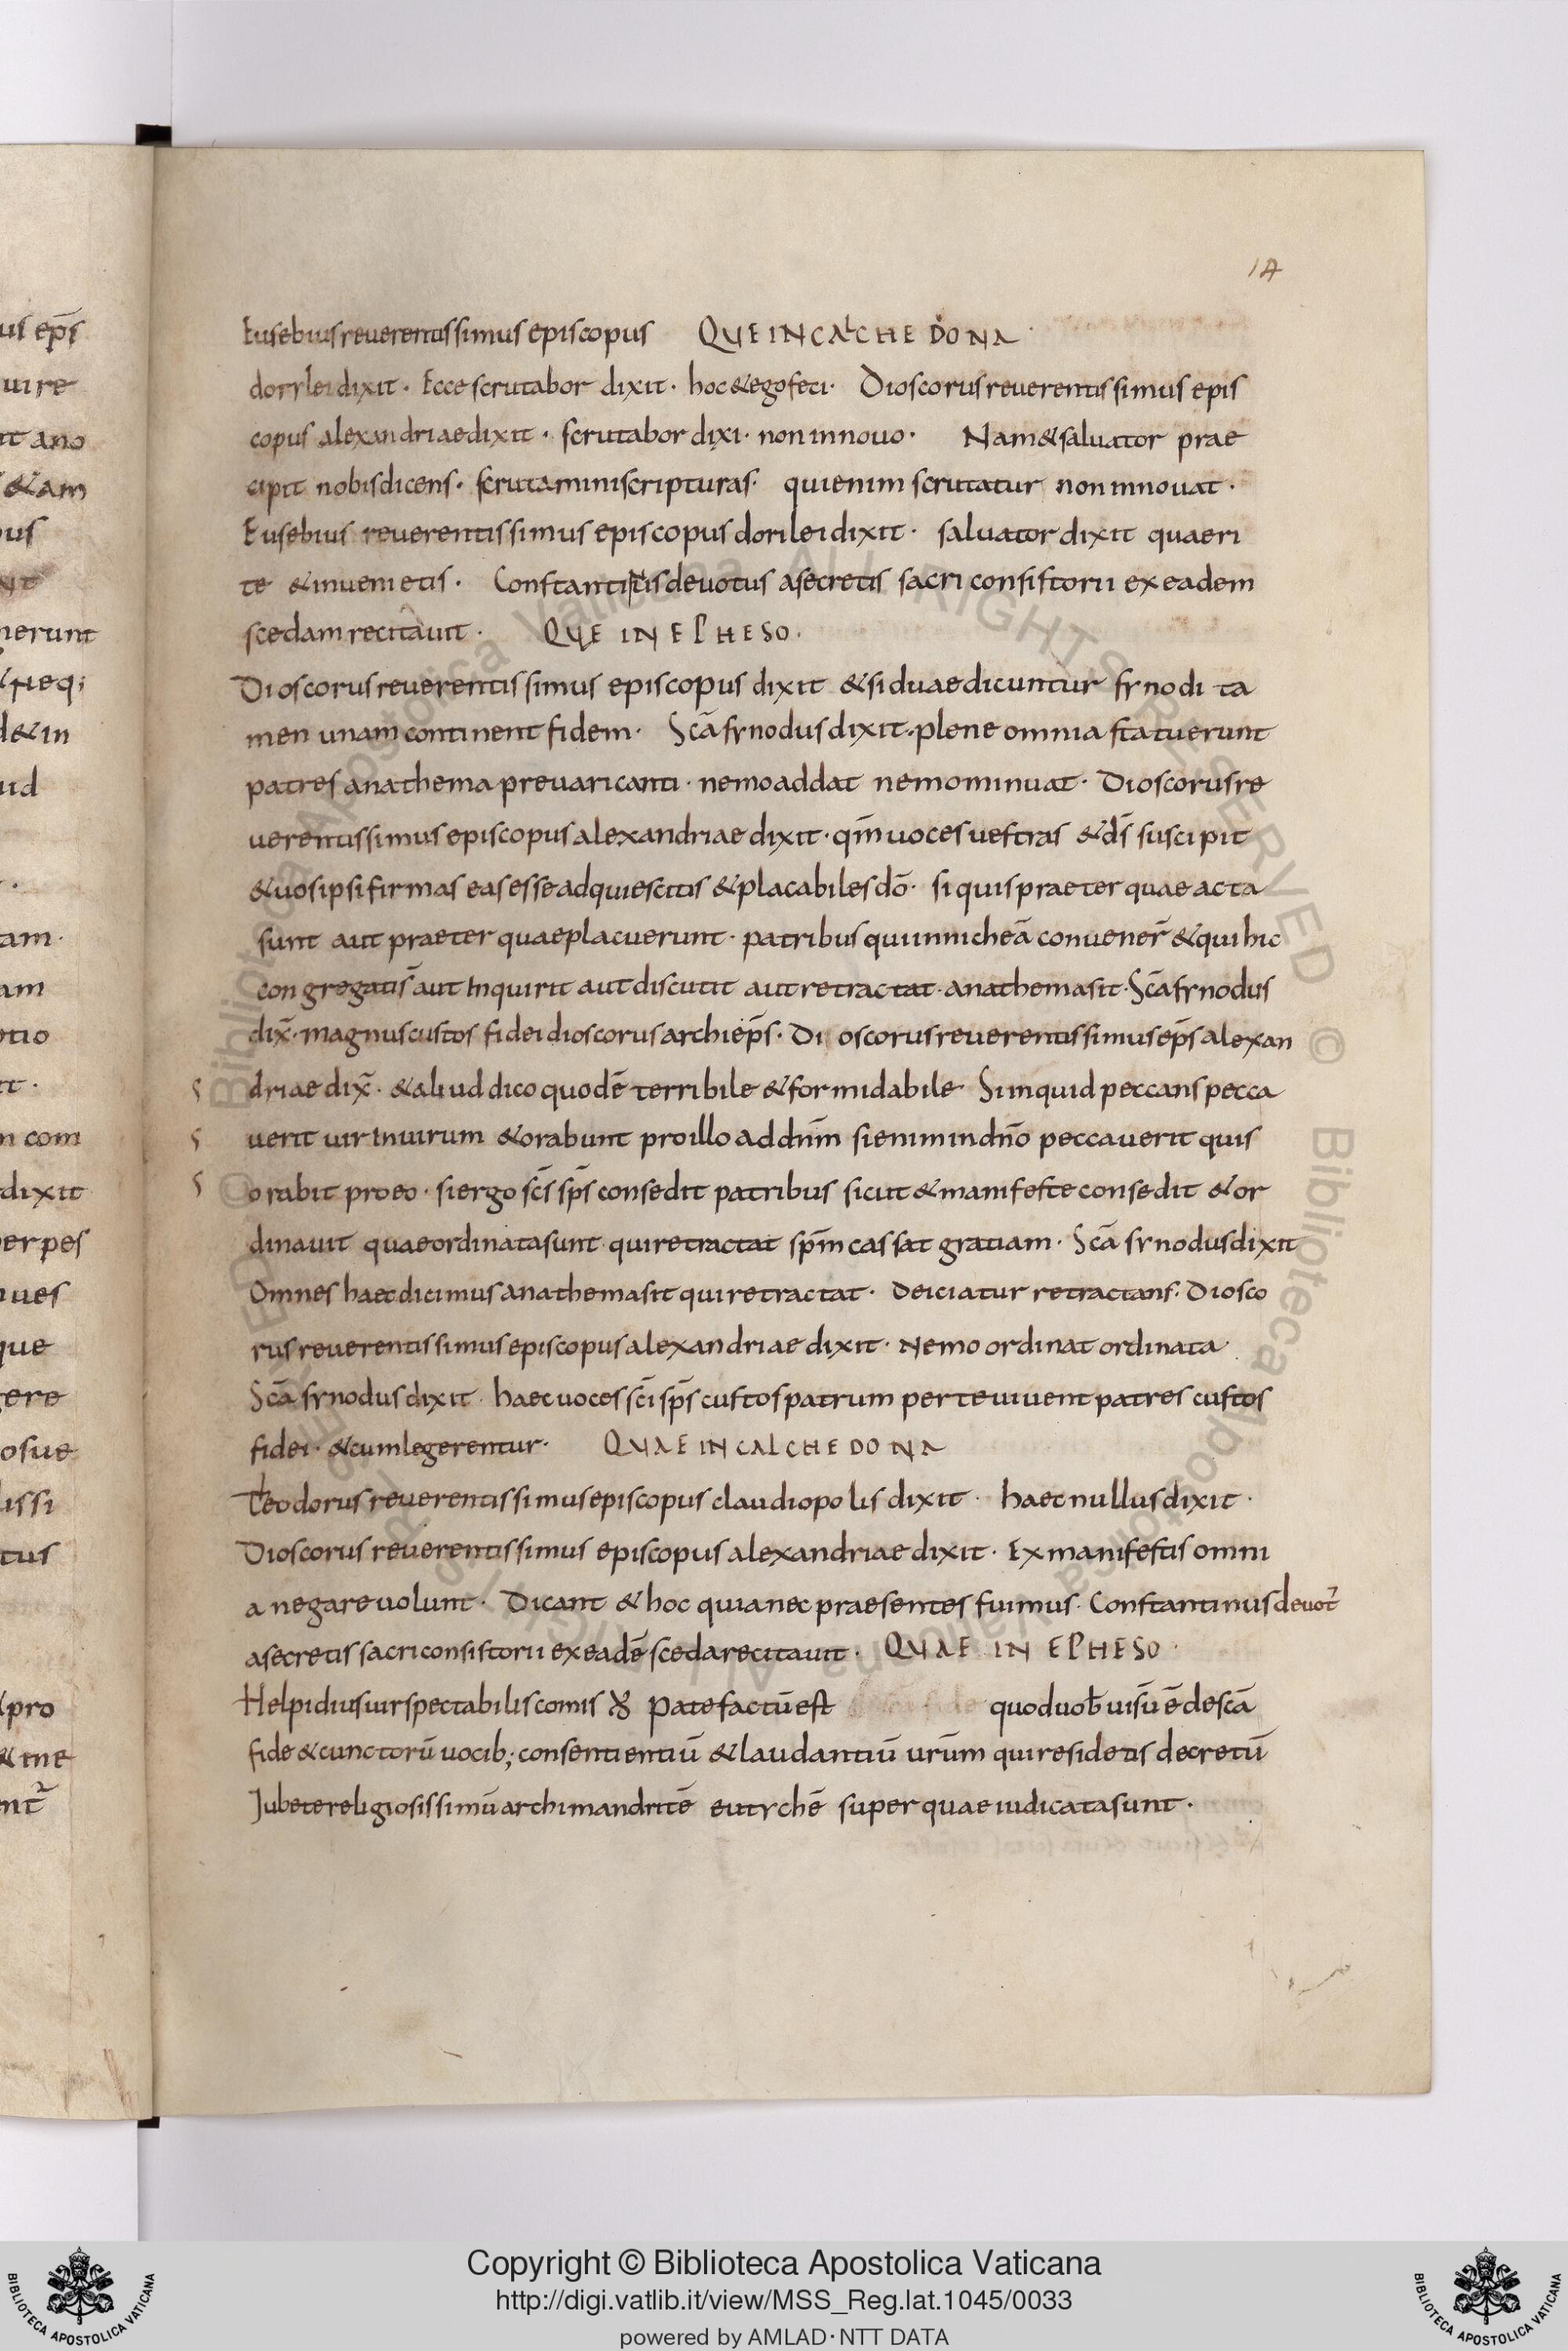 14
Eusebius reuerentissimus episcopus QUE IN CALCHEDONA
dorylei dixit · Ecce scrutabor dixit · hoc & ego feci · Dioscorus reuerentissimus epis
copus alexandriae dixit · scrutabor dixi · non innouo · Nam & saluator prae
cipit nobis dicens · scrutamini scripturas · qui enim scrutatur non innouat ·
Eusebius reuerentissimus episcopus dorilei dixit · saluator dixit quaeri
te & inuenietis · deuotus asecretis sacri consistorii ex eadem
scedam recitauit · QUE IN EPHESO ·
Dioscorus reuerentissimus episcopus dixit & si duae dicuntur synodi ta
men unam continent fidem · Scā synodus dixit · plene omnia statuerunt
patres anathema preuaricanti · nemo addat nemo minuat · Dioscorus re
uerentissimus episcopus alexandriae dixit · qm̄ uoces uestras & ds̄ suscipit
& uos ipsi firmas eas esse adquiescitis & placabiles dō · si quis praeter quae acta
sunt aut praeter quae placuerunt · patribus qui in nicheā conuener̄ & qui hic
congregatis̄ aut Inquirit aut discutit aut retractat · anathema sit · Scā synodus
dix̄ · magnus custos fidei dioscorus archiep̄s · Di oscorus reuerentissimus ep̄s alexan
driae dix̄ · & aliud dico quod ē terribile & formidabile · Si inquid peccans pecca
uerit uir In uirum & orabunt pro illo ad dn̄m si enim in dn̄o peccauerit quis
orabit pro eo · si ergo sc̄s sp̄s consedit patribus sicut & manifeste consedit & or
dinauit quae ordinata sunt qui retractat sp̄m cassat gratiam · Scā synodus dixit
Omnes haec dicimus anathema sit qui retractat · Deiciatur retractans · Diosco
rus reuerentissimus episcopus alexandriae dixit · Nemo ordinat ordinata ·
Scā synodus dixit · haec uoces sc̄i sp̄s custos patrum per te uiuent patres custos
fidei · & cum legerentur · QUAE IN CALCHEDONA
Teodorus reuerentissimus episcopus claudiopolis dixit · haec nullus dixit ·
Dioscorus reuerentissimus episcopus alexandriae dixit · Ex manifestis omni
a negare uolunt · Dicant & hoc quia nec praesentes fuimus · Constantinus deuot
asecretis sacri consistorii ex eadē sceda recitauit · QUAE IN EPHESO ·
Helpidius uir spectabilis comis Patefactū est quod uob̄ uisū ē de scā
fide & cunctorū uocib; consentientiū & laudantiū urūm qui residetis decretū
Jubete religiosissimū archimandritē eutychē super quae iudicata sunt ·
us ep̄s
uire
it ano
& am
ous
nerunt
de & in
uid
tam ·
am
otio
n com
dixit
erpes
nues
que
gere
osue
lissi
tus
pro
& me
Copyright © Biblioteca Apostolica Vaticana
http://digi.vatlib.it/view/MSS_Reg.lat.1045/0033
powered by AMLAD · NTT DATA
BIBLIOTECA APOSTOLICA VATICANA
BIBLIOTECA APOSTOLICA VATICANA